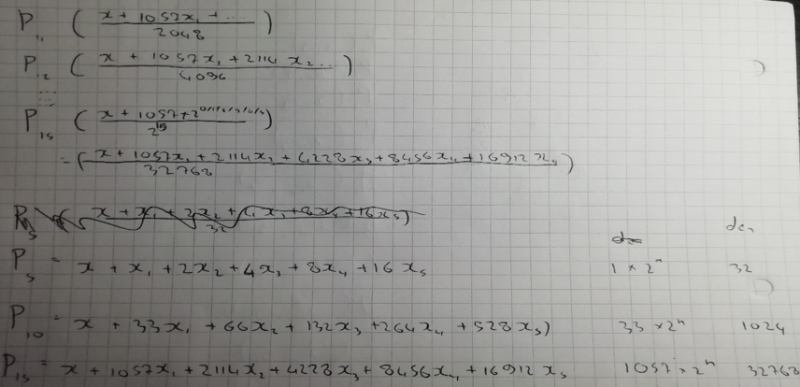 P₁₁ ( x + 1057x₁ + .... / 2048 )
P₁₂ ( x + 1057x₁ + 2114x₂ ... / 4096 )
P₁₅ ( / 2¹⁵ )
= ( x + 1057x₁ + 2114x₂ + 4228x₃ + 8456x₄ + 16912x₅ / 32768 )
x + x₁ + 2x₂ + 4x₃ + 8x₄ + 16x₅ ) / 32
den
P₅ = x + x₁ + 2x₂ + 4x₃ + 8x₄ + 16x₅ 1 × 2ⁿ 32
P₁₀ = x + 33x₁ + 66x₂ + 132x₃ + 264x₄ + 528x₅ ) 33 × 2ⁿ 1024
P₁₅ = x + 1057x₁ + 2114x₂ + 4228x₃ + 8456x₄ + 16912x₅ 1057 × 2ⁿ 32768